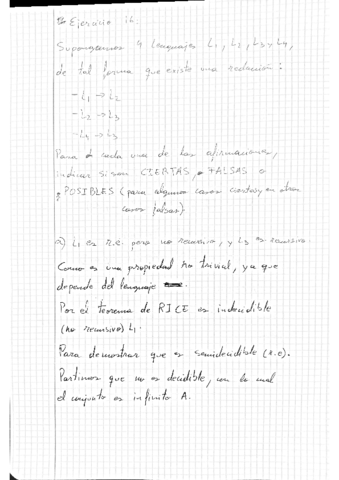 Ejercicio 16.
Supongamos 4 lenguajes L1, L2, L3 y L4,
de tal forma que existe una reducción:
- L1 → L2
- L2 → L3
- L4 → L3
Para cada una de las afirmaciones,
indicar si son CIERTAS, FALSAS o
POSIBLES (para algunos casos ciertas y en otros
casos falsas)
a) L1 es r.e. pero no recursivo, y L3 es recursivo.
Como es una propiedad no trivial, ya que
depende del lenguaje
Por el teorema de RICE es indecidible
(no recursivo) L1.
Para demostrar que es semidecidible (r.e).
Partimos que no es decidible, con lo cual
el conjunto es infinito A.